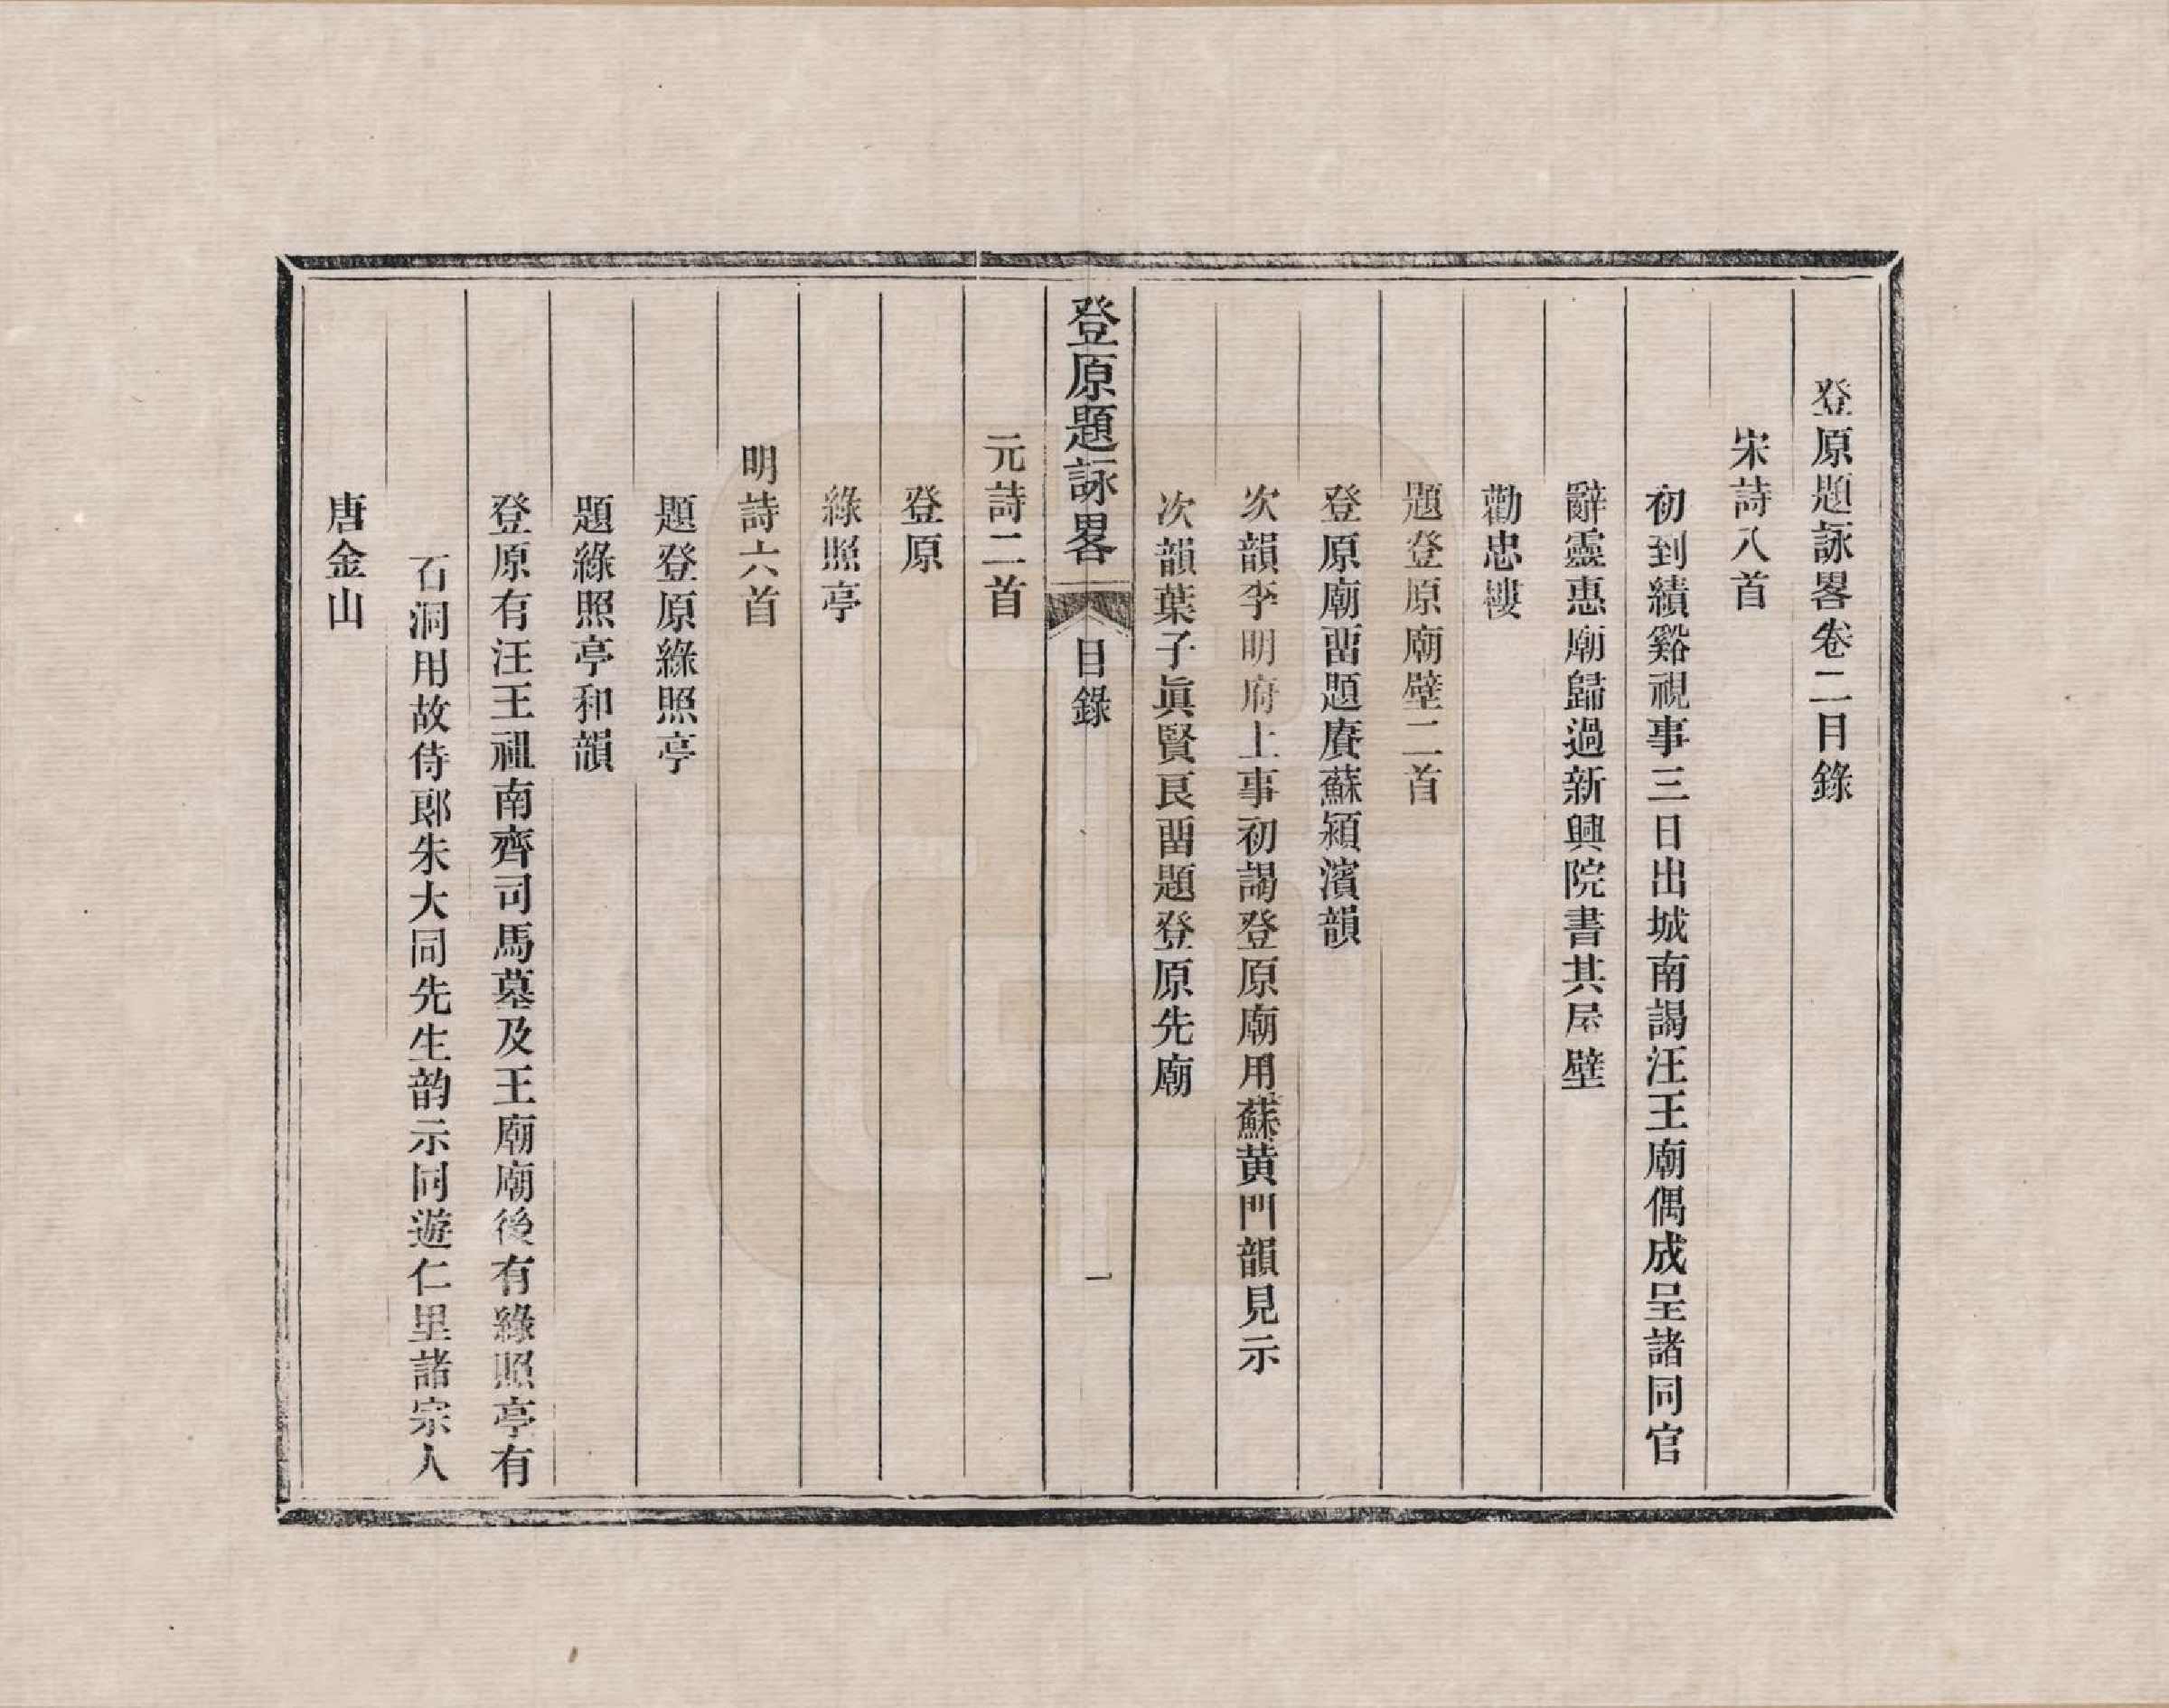 登原題詠畧卷二目錄
宋詩八首
初到績谿視事三日出城南謁汪王廟偶成呈諸同官
辭靈惠廟歸過新興院書其屋壁
勸忠樓
題登原廟壁二首
登原廟畱題賡蘇潁濱韻
次韻李明府上事初謁登原廟用蘇黃門韻見示
次韻葉子眞賢良畱題登原先廟
登原題詠畧 目錄 一
元詩二首
登原
綠照亭
明詩六首
題登原綠照亭
題綠照亭和韻
登原有汪王祖南齊司馬墓及王廟廟後有綠照亭有
石洞用故侍郎朱大同先生韵示同遊仁里諸宗人
唐金山